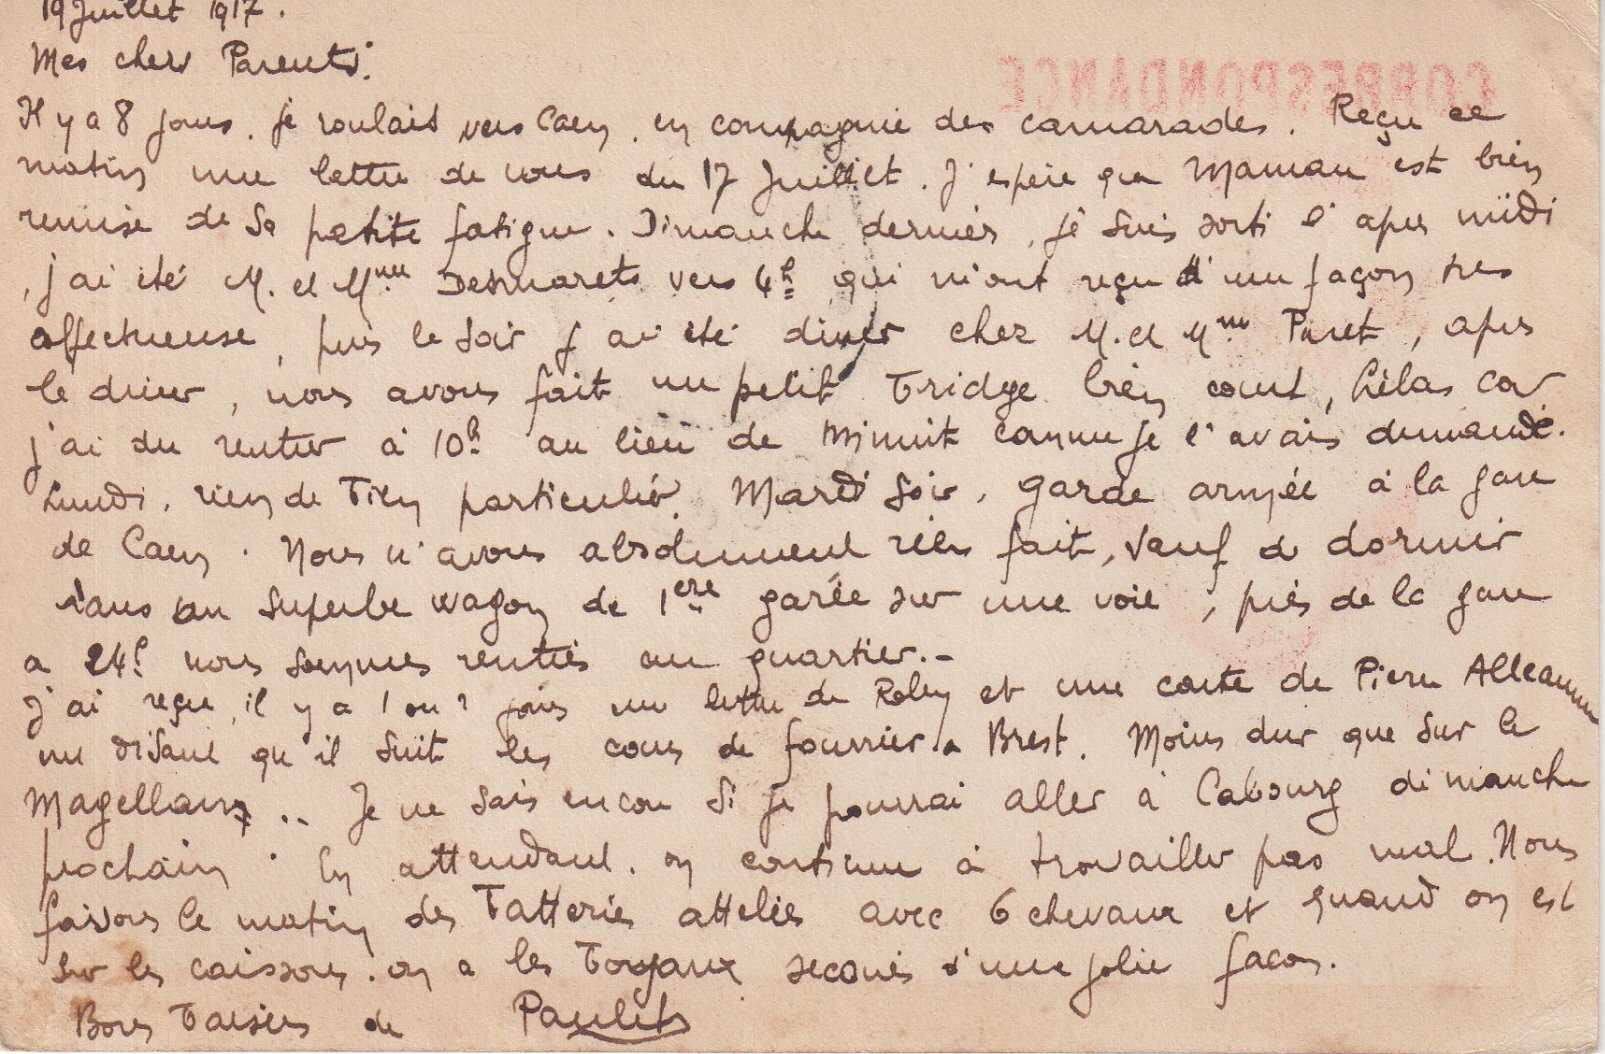 19 Juillet 1917.
Mes chers Parents.
CORRESPONDANCE
Il y a 8 jours. je roulais vers Caen, en compagnie des camarades. Reçu ce
matin une lettre de vous du 17 Juillet. J'espère que Maman est bien
remise de sa petite fatigue. Dimanche dernier, je suis sorti l'après midi
, j'ai été M. et Mme Desmarets vers 4h qui m'ont reçu d'une façon très
affectueuse, puis le soir j'ai été diner chez M. et Mme Puret, après
le diner, nous avons fait un petit bridge bien court, hélas car
j'ai du rentrer à 10h au lieu de Minuit comme je l'avais demandé.
Lundi, rien de bien particulier. Mardi soir, garde armée à la gare
de Caen. Nous n'avons absolument rien fait, sauf de dormir
dans un superbe wagon de 1ere garée sur une voie, près de la gare
a 24h nous sommes rentrés au quartier.-
J'ai reçu, il y a 1 ou 2 jours une lettre de et une carte de Pierre Alleaume
me disant qu'il suit les cours de fourrier a Brest. Moins dur que sur le
Magellan... Je ne sais encore si je pourrai aller à Cabourg dimanche
prochain. En attendant, on continue à travailler pas mal. Nous
faisons le matin des batteries attelées avec 6 chevaux et quand on est
sur les caissons, on a les boyaux secoués d'une jolie facon.
Bons baisers de